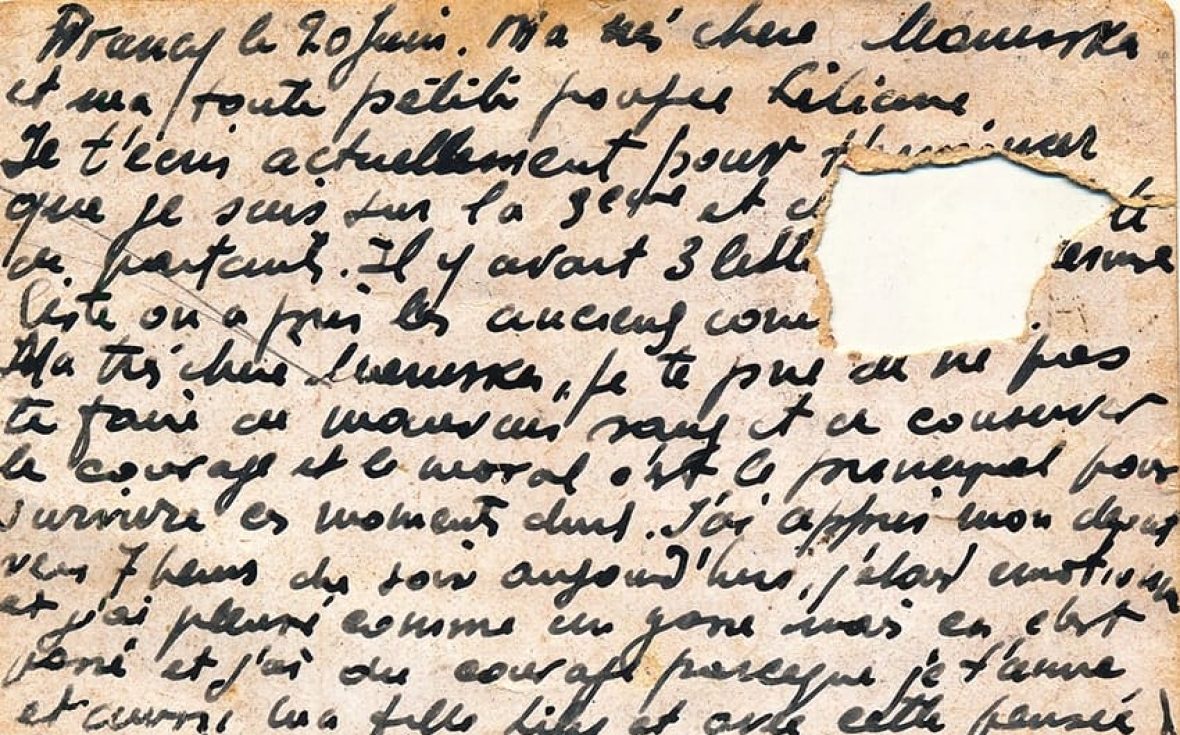 Drancy le 20 Juin. Ma trés chere Mamuska
et ma toute petite poupée Liliane
Je t'ecris actuellement pour t'
que je suis sur la 3eme et
de partants. Il y avait 3
liste on a pris les anciens
Ma trés chere Mamuska, je te prie de ne pas
te faire de mauvais sang et de conserver
le courage et le moral c'est le principal pour
survivre ces moments durs. J'ai appris mon depart
vers 7 heures du soir aujourd'hui, j'etais
et j'ai pleuré comme un gosse mais ca c'est
passé et j'ai du courage parceque je t'aime
et aussi ma fille Lily et avec cette pensée